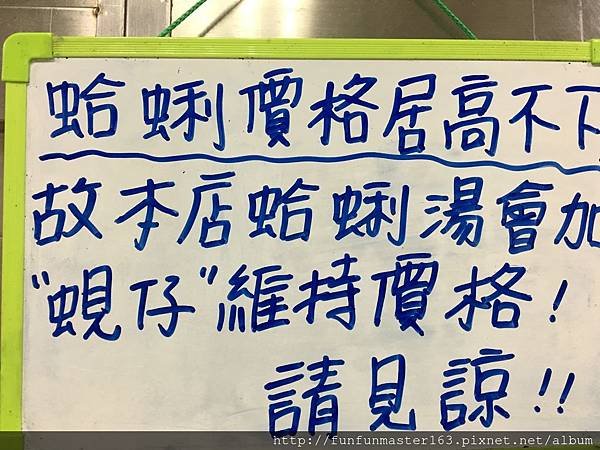 蛤蜊價格居高不下
故本店蛤蜊湯會加
"蜆仔"維持價格!
請見諒!!
http://funfunmaster163.pixnet.net/album